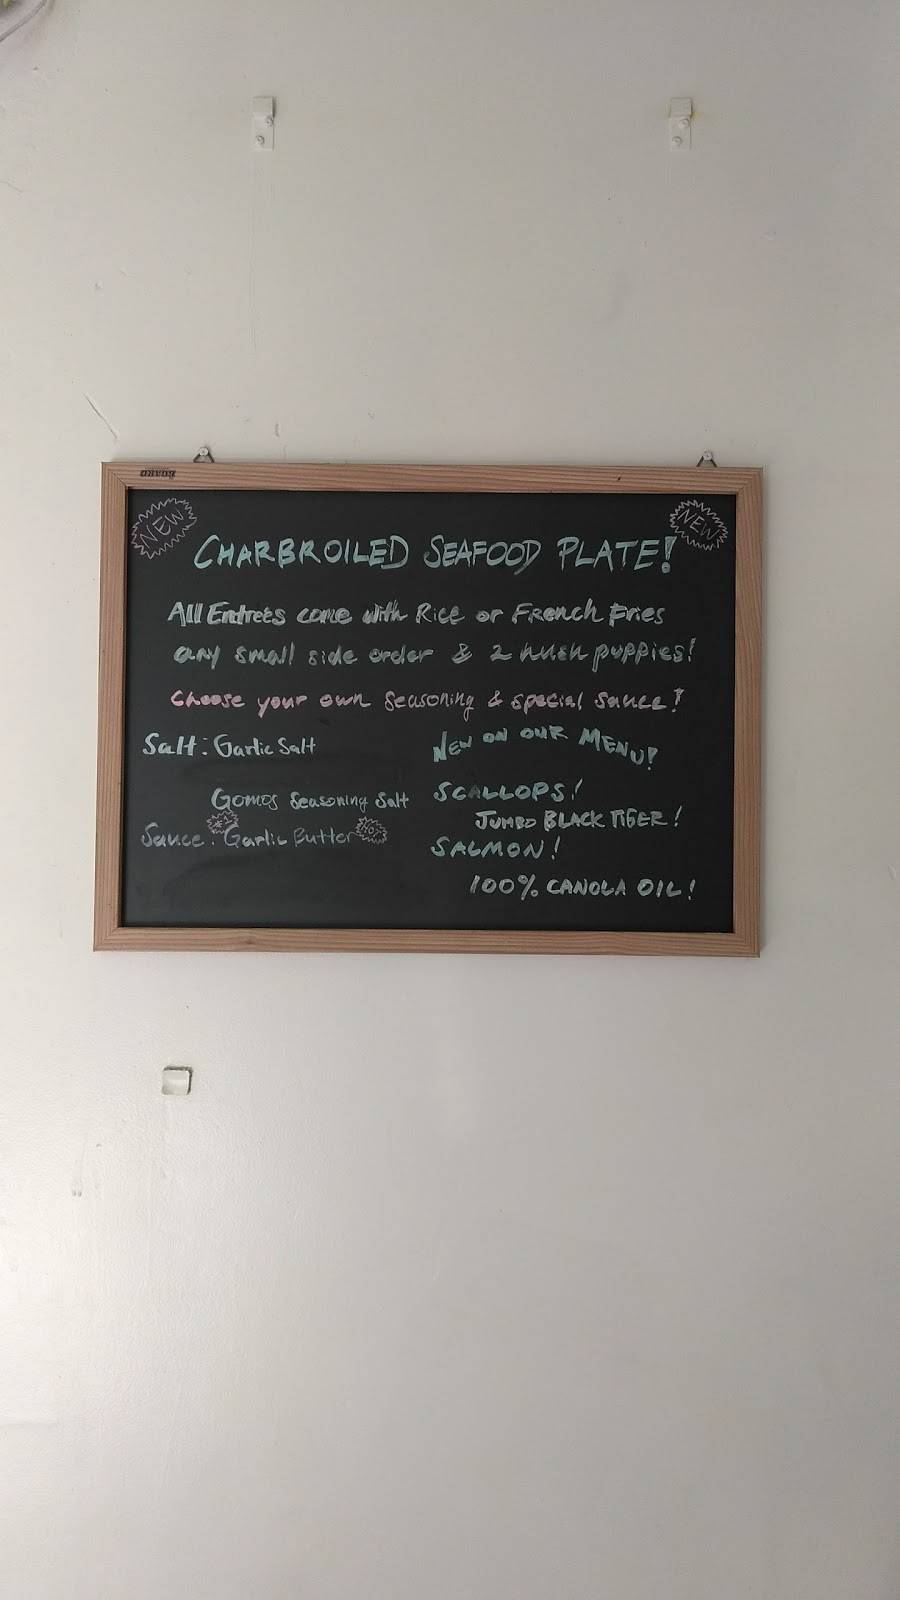 NEW
NEW
CHARBROILED SEAFOOD PLATE!
All Entrées come with Rice or French Fries
any small side order & 2 hush puppies!
Choose your own Seasoning & special sauce!
Salt: Garlic Salt
Gomos Seasoning Salt
Sauce: Garlic Butter
NEW ON OUR MENU!
SCALLOPS!
JUMBO BLACK TIGER!
SALMON!
100% CANOLA OIL!